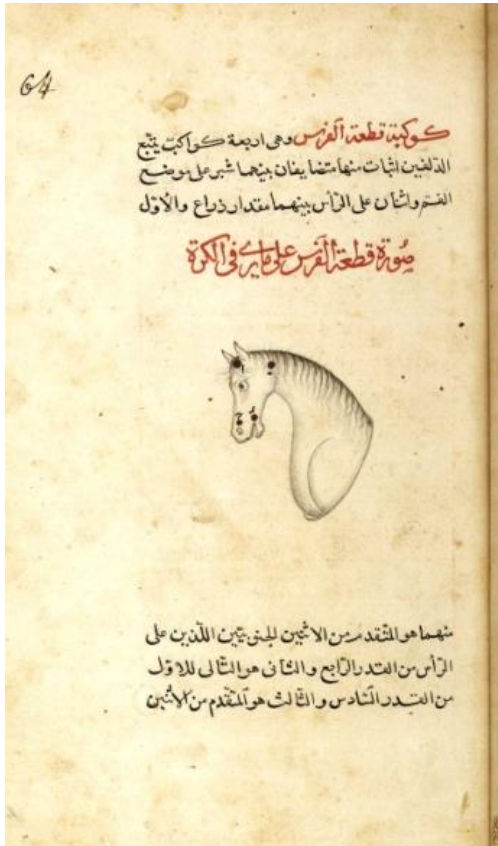 64
كوكبة قطعة الفرس وهى اربعة كواكب يتبع
الدلفين اثنان منها متضايفان بينهما شبر على موضع
الفم واثنان على الرأس بينهما مقدار ذراع والاول
صورة قطعة الفرس على ما يرى فى الكرة
منهما هو المتقدم من الاثنين الجنوبيين اللذين على
الرأس من القدر الرابع والثانى هو التالى للاول
من القدر السادس والثالث هو المتقدم من الاثنين